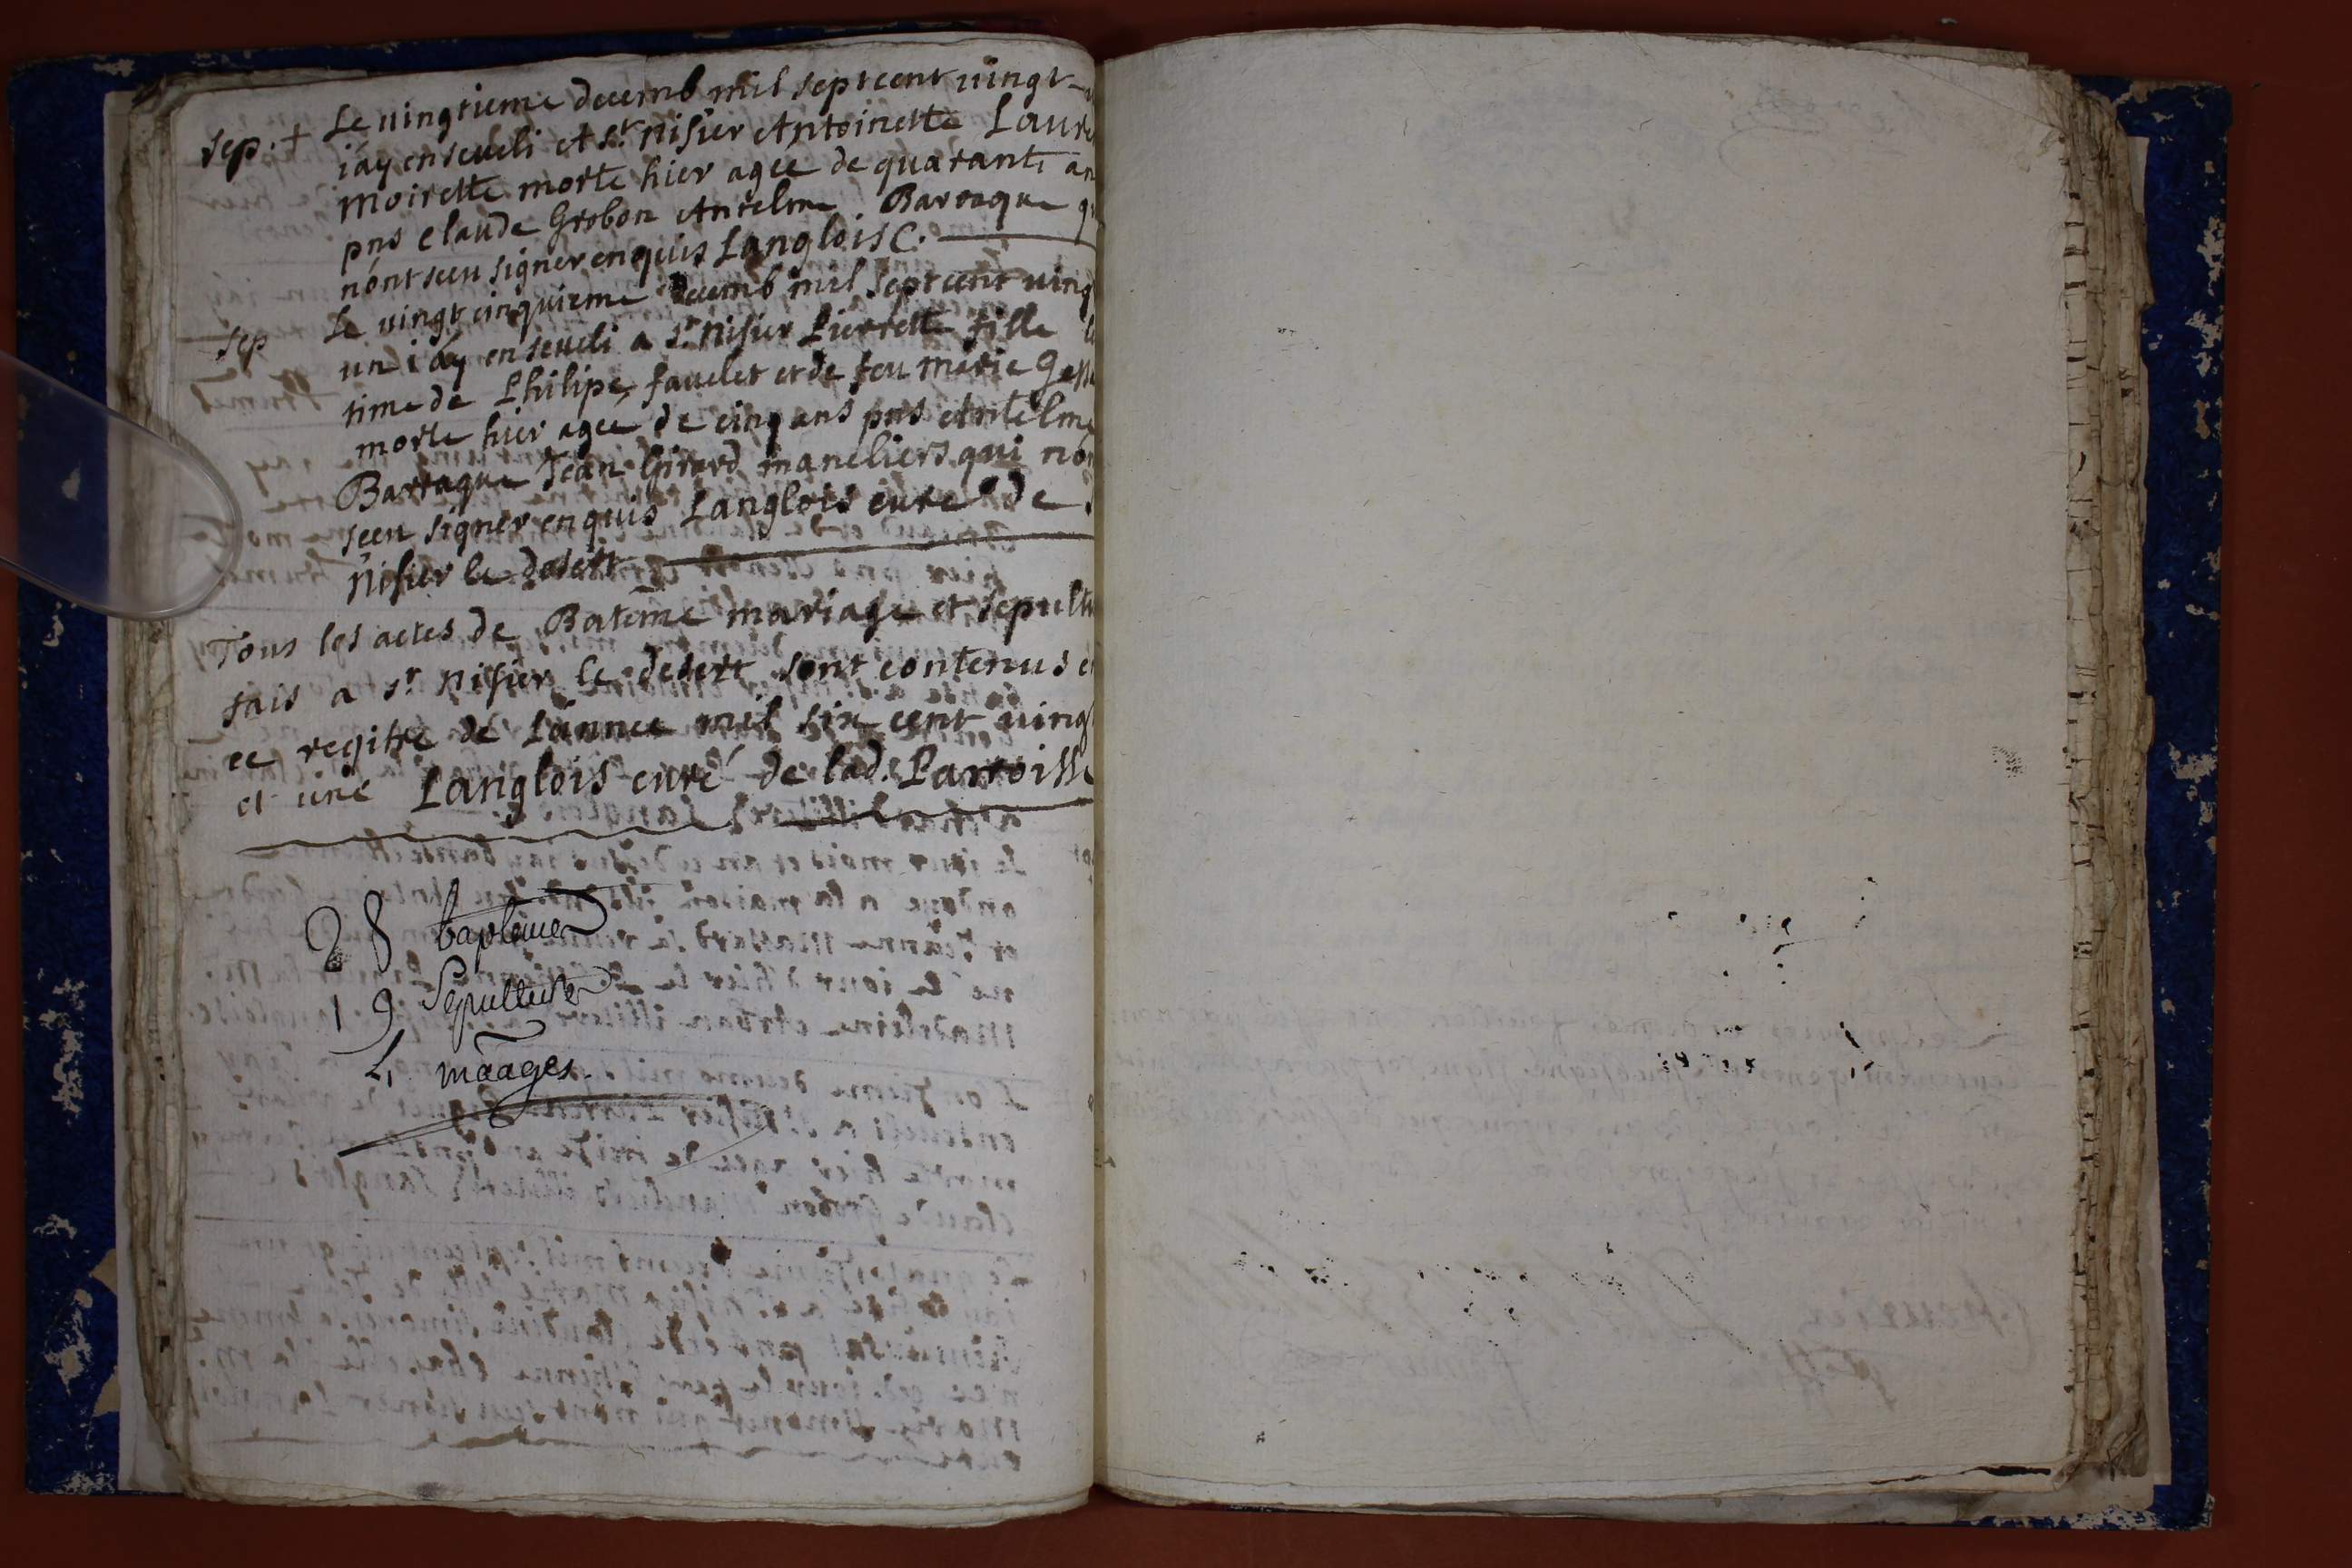 Le vingtieme decemb mil septcent vingt
sep. + iáy enseveli A st. nisier Antoinette Laure
moirette morte hier agee de quarante an
pns claude Grobon Antelme Barraque q
nónt sceu signer enquis Langlois C.
Le vingt cinquieme decemb mil septcent ving
sep un iáy enseveli a st. nisier Pierrette fille l
time de Philipe favelet et de feu marie Gesse
morte hier agée de cinq ans pns Antelme
Barraque Jean Girard maneliers qui nón
sceu signer enquis Langlois curé de S
nisier le desert
Tous les actes de Batême mariage et sepultu
fais a st. nisier le desert sont contenus e
ce regitre de Lánnee mil six cent ving
et une Langlois curé de lad. Parroisse
28 baptemes
19 Sepultures
4 maages.